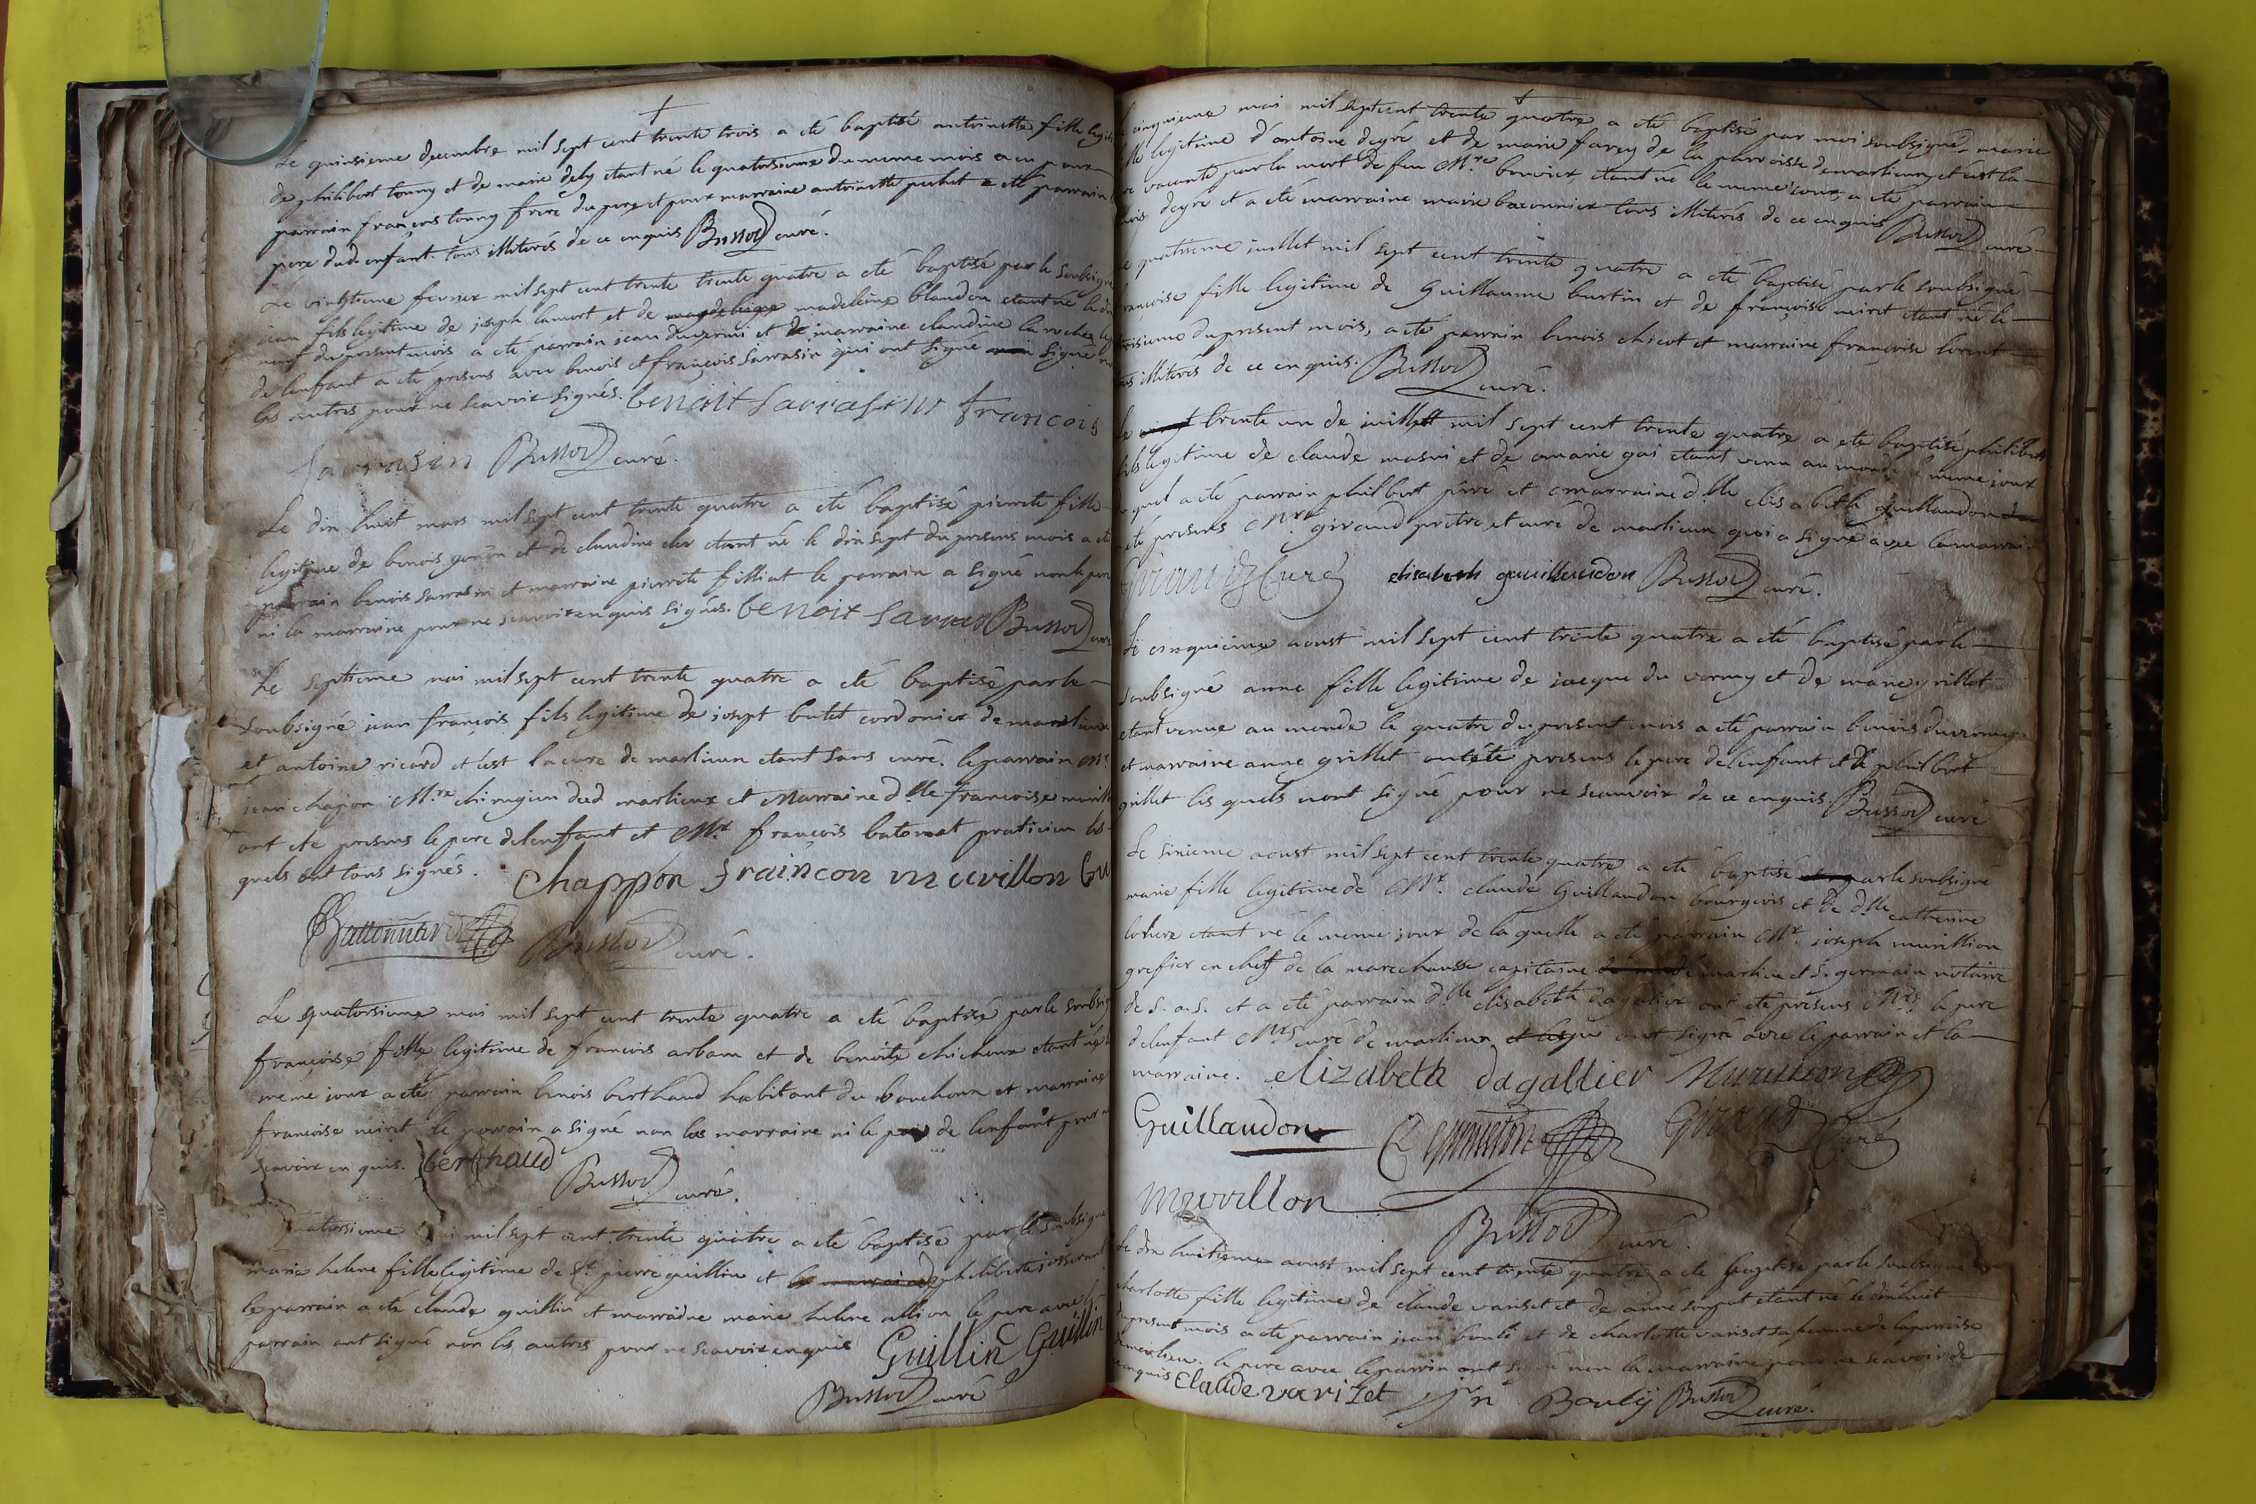 Le quinsieme decembre mil sept cent trente trois a eté baptisé antoinette fille
de philibert tonny et de marie deby etant né le quatorsieme du meme mois a eu pour
parrain françois tonny frere du pere et pour marraine antoinette perbet a eté parrain
pere dud. enfant. tous illiterés de ce enquis Bussod curé.
Le vingtieme fevrier mil sept cent trente trente quatre a eté baptisé par le soubsigné
jean fils legitime de joseph lamort et de madeleine blandon etant né le
neuf du present mois a eté parrain jean duverni et de marraine claudine la roche
de lenfant a eté presens avec benois et françois sarrasin qui ont signé
les autres pour ne scavoir signés. benoit Sarrasin françois
Sarrasin Bussod curé.
Le dix huit mars mil sept cent trente quatre a eté baptisé pierrete fille
legitime de benois gonon et de claudine cler etant né le dix sept du presens mois a eté
parrain benois sarrasin et marraine pierrete filliat le parrain a signé non le pere
ni la marraine pour ne scavoir enquis signés. benoit Sarras Bussod curé
Le septieme mai mil sept cent trente quatre a eté baptisé par le
soubsigné jean françois fils legitime de josept butet cordonier de marlieux
et antoine ricard et cest la cure de marlieux etant sans curé. le parrain Mr.
jean chapon Mre. chirugien dud marlieux et Marraine dlle françoise
ont ete presens le pere de lenfant et Mr. françois batonat praticien les
quels ont tous signés. Chappon françon muvillon bu
Battonnard Bussod curé.
Le quatorsieme mai mil sept cent trente quatre a eté baptisé par le soubsigné
françoise fille legitime de françois arban et de benoite chichoux etant né le
meme jour a eté parrain benois berthaud habitant du bouchoux et marraine
françoise neiret le parrain a signé non les marraine ni le pere de lenfant pour
scavoir enquis. berthaud
Bussod curé.
quatorsieme mai mil sept cent trente quatre a eté baptisé par le soubsigné
marie helene fille legitime de Sr. pierre guillin et philiberte
le parrain a eté claude guillin et marraine marie helene allion le pere avec le
parrain ont signé non les autres pour ne scavoir enquis Guillin Guillin
Bussod curé
cinquieme mai mil sept cent trente quatre a eté baptisé par moi soubsigné marie
fille legitime d'antoine degré et de marie farcy de la parroisse de marlieux et cest la
cure vacante par la mort de feu Mre. bouvier, etant né le meme jour, a eté parrain
degré et a eté marraine marie baconnier tous illiterés de ce enquis Bussod curé
Le quatrieme juillet mil sept cent trente quatre a eté baptisé par le soubsigné
françoise fille legitime de Guillaume burtin et de françoise miret etant né le
troisieme du present mois, a eté parrain benois chicot et marraine françoise lorent
tous illiterés de ce enquis. Bussod curé.
Le trente un de juillet mil sept cent trente quatre a eté baptisé philibert
fils legitime de claude masni et de marie gai etant venu au monde le meme jour
du quel a eté parrain philbert et marraine dlle elisabeth guillaudon
eté presens Mre. giraud prêtre et curé de marlieux qui a signé avec la marraine
Giraud Curé elisabeth gauillaudon Bussod curé.
Le cinquieme aoust mil sept cent trente quatre a eté baptisé par le
soubsigné anne fille legitime de jacque du verney et de marie grillet
etant venue au monde le quatre du present mois a eté parrain benois duverney
et marraine anne grillet ont eté presens le pere de lenfant et de philibert
grillet les quels nont signé pour ne scauvoir de ce enquis. Bussod curé
Le sixieme aoust mil sept cent trente quatre a eté baptisé par le soubsigné
marie fille legitime de Mr. claude Guillaudon bourgeois et de dlle catherine
etant né le meme jour de la quelle a eté parrain Mr. joseph murillion
grefier en cheff de la marechaussé capitaine de marlieu et S. germain notaire
de S. a. S. et a eté parrain dlle elisabeth dagalier ont eté presens Mrs. le pere
de lenfant Mrs curé de marlieux ont signé avec le parrain et la
marraine. elizabeth dagallier Murillion
Guillaudon Giraud Curé
Muvillon
Bussod curé.
Le dix huitieme aoust mil sept cent trente quatre a eté baptisé par le soubsigné
charlotte fille legitime de claude variset et de anne etant né le dixhuit
du present mois a eté parrain jean boulé et de charlotte variset sa femme de la parroisse
de marlieu. le pere avec le parrin ont signé non la marraine pour ne scavoir de
ce enquis Claude varizet jn Bouly Bussod curé.